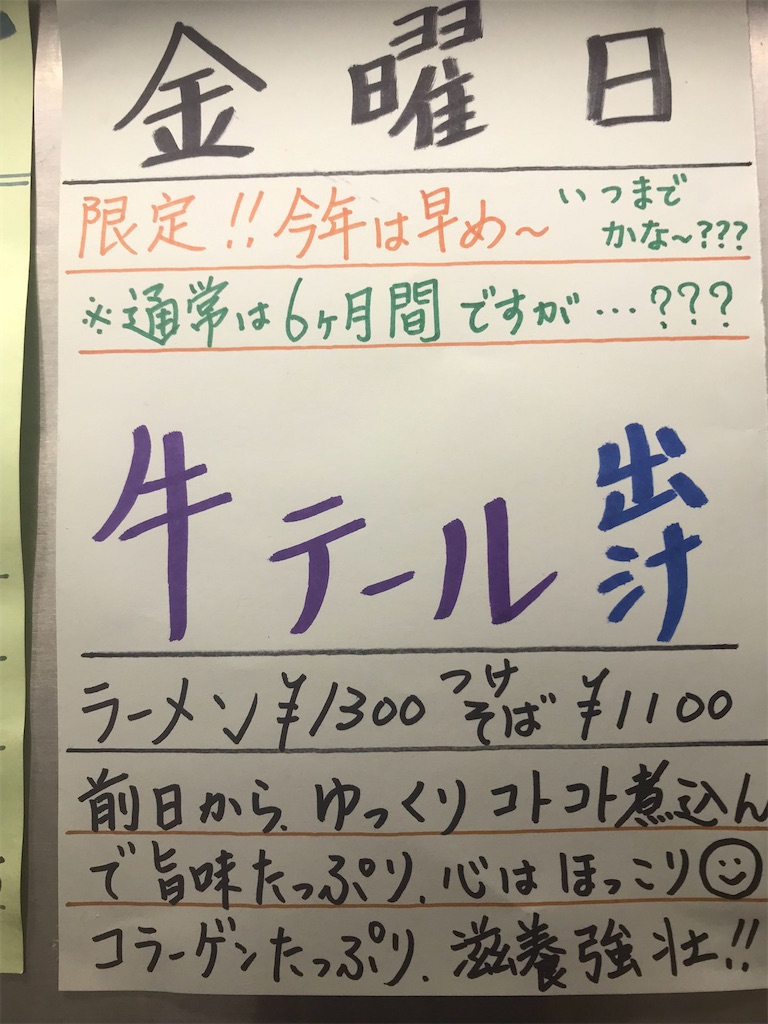 金曜日
限定!!今年は早め〜 いつまで
かな〜???
※通常は6ヶ月間ですが…???
牛テール出汁
ラーメン¥1300 つけそば¥1100
前日から、ゆっくりコトコト煮込ん
で旨味たっぷり、心はほっこり
コラーゲンたっぷり、滋養強壮!!